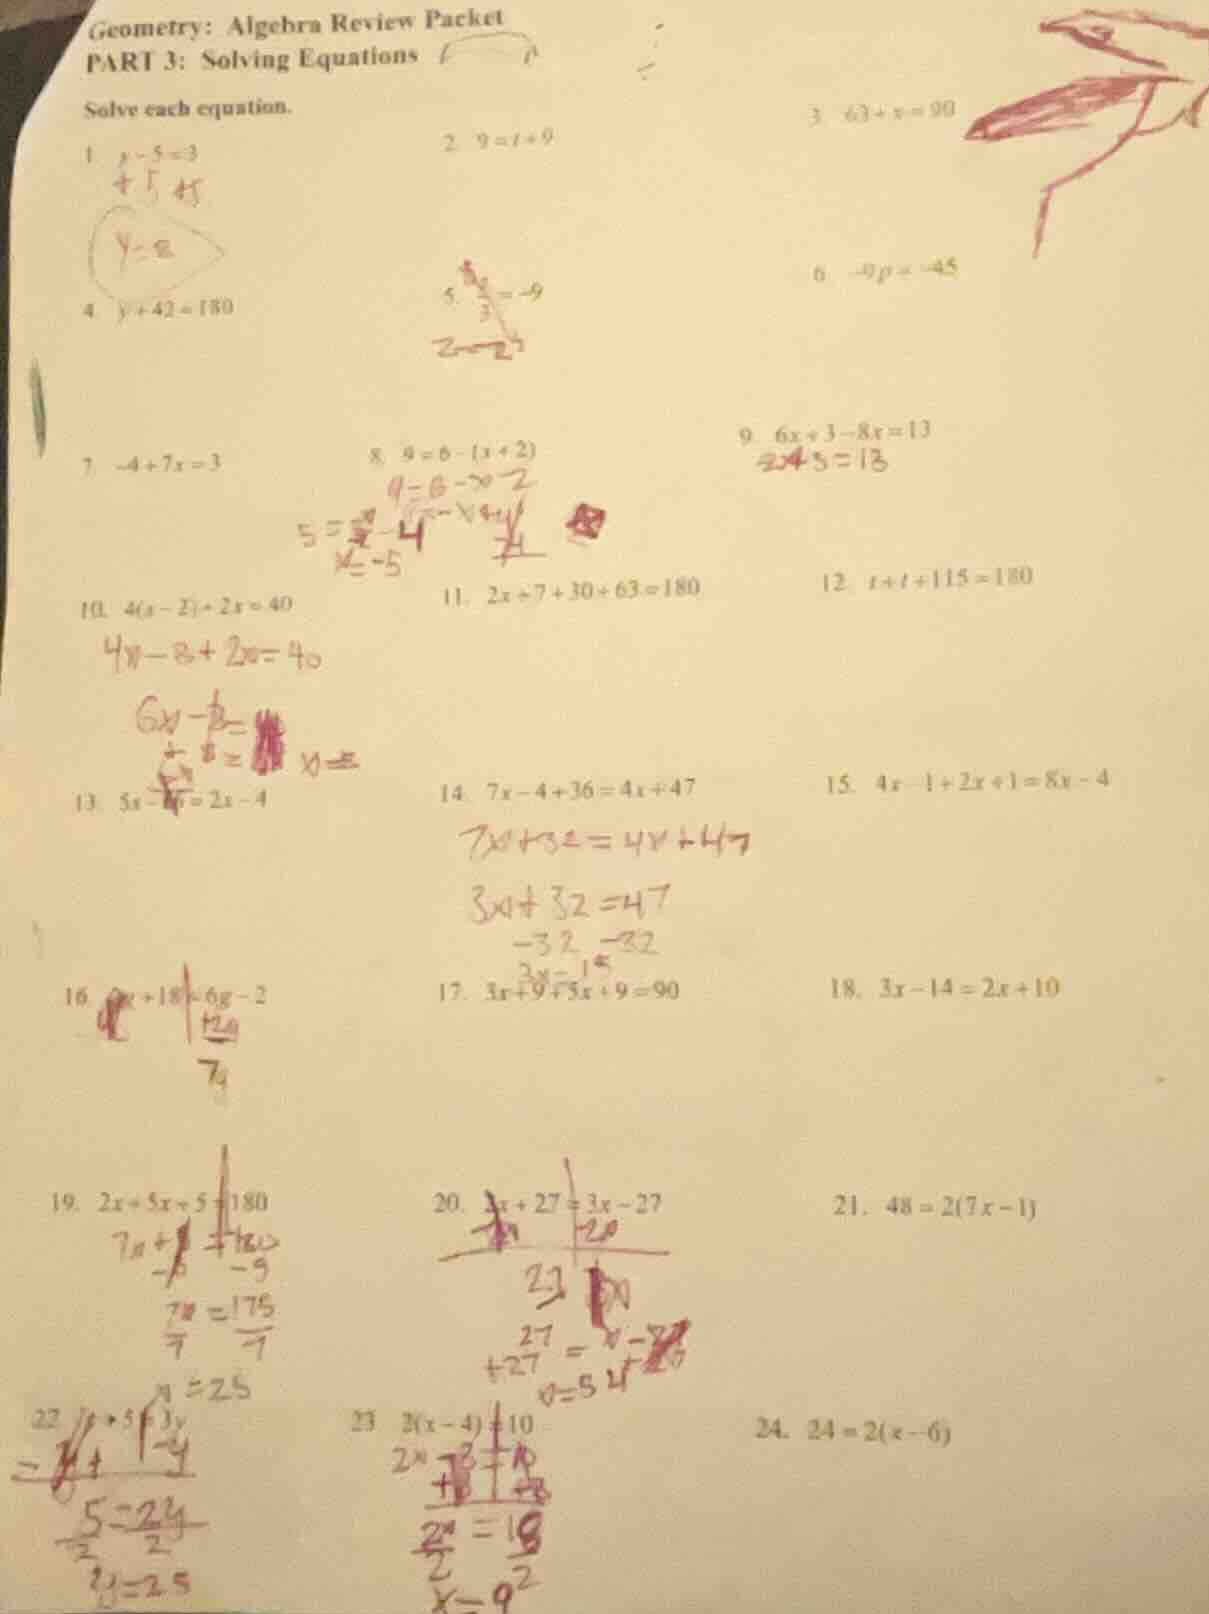 Geometry: Algebra Review Packet
PART 3: Solving Equations
Solve each equation.
1. y - 5 = 3
+ 5 +5
y = 8
2. 9 = t + 9
3. 63 + x = 90
4. y + 42 = 180
5. 3 = -9
6. -9p = -45
7. -4 + 7x = 3
8. 9 = 6 - (x + 2)
9 = 6 - x - 2
x = -5
9. 6x + 3 - 8x = 13
10. 4(x - 2) + 2x = 40
4x - 8 + 2x = 40
6x - 8 =
+ 8 =
x =
11. 2x + 7 + 30 + 63 = 180
12. t + t + 115 = 180
13. 5x - = 2x - 4
14. 7x - 4 + 36 = 4x + 47
7x + 32 = 4x + 47
3x + 32 = 47
-32 -32
3x = 15
15. 4x - 1 + 2x + 1 = 8x - 4
16. + 18 = 6g - 2
7g
17. 3x + 9 + 5x + 9 = 90
18. 3x - 14 = 2x + 10
19. 2x + 5x + 5 = 180
7x + = 180
7x = 175
7 7
x = 25
20. x + 27 = 3x - 27
27 = x -
+27
x = 54
21. 48 = 2(7x - 1)
22. + 5 = 3y
- y
5 = 2y
2 2
y = 25
23 2(x - 4) = 10
2x - 8 = 10
+8 +8
2x = 18
2 2
x = 9
24. 24 = 2(x - 6)